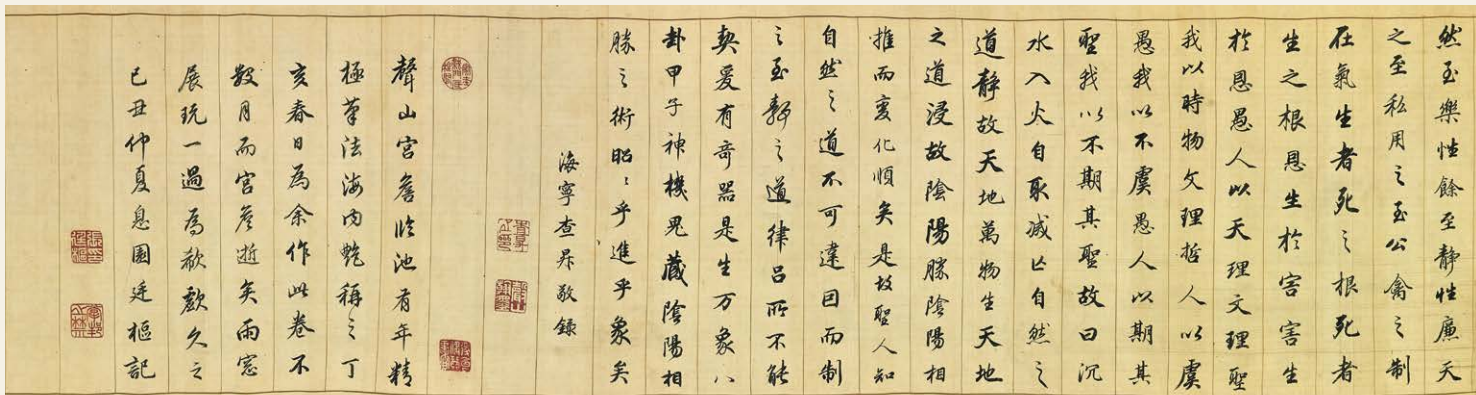 然至樂性餘至静性廉天
之至私用之至公禽之制
在氣生者死之根死者
生之根恩生於害害生
於恩愚人以天理文理聖
我以時物文理哲人以虞
愚我以不虞愚人以期其
聖我以不期其聖故曰沉
水入火自取滅亡自然之
道静故天地萬物生天地
之道浸故陰陽勝陰陽相
推而變化順矣是故聖人知
自然之道不可違因而制
之至靜之道律吕所不能
契爰有奇器是生万象八
卦甲子神機鬼藏陰陽相
勝之術昭〻乎進乎象矣
海寧查昇敬録
聲山宫詹臨池有年精
極筆法海内艷稱之丁
亥春日為余作此卷不
數月而宫詹逝矣雨窓
展玩一過為欷歔久之
己丑仲夏息園廷樞記